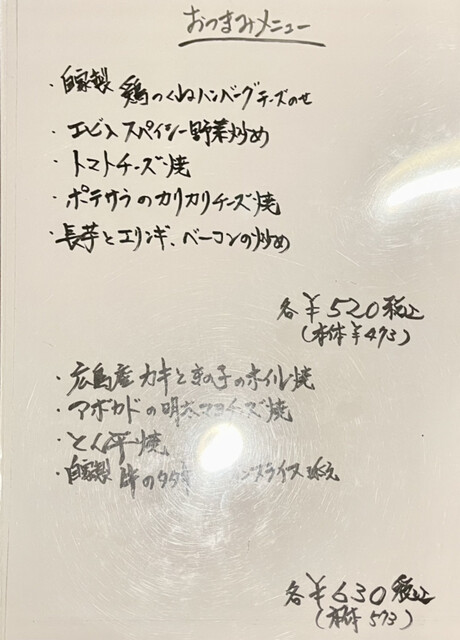 おつまみメニュー
・自家製 鶏のつくねハンバーグチーズのせ
・エビ入スパイシー野菜炒め
・トマトチーズ焼
・ポテサラのカリカリチーズ焼
・長芋とエリンギ、ベーコンの炒め
各￥520税込
(本体￥473)
・広島産カキときの子のホイル焼
・アボカドの明太マヨチーズ焼
・とん平焼
・自家製 牛のタタキ スライス添え
各￥630税込
(本体573)